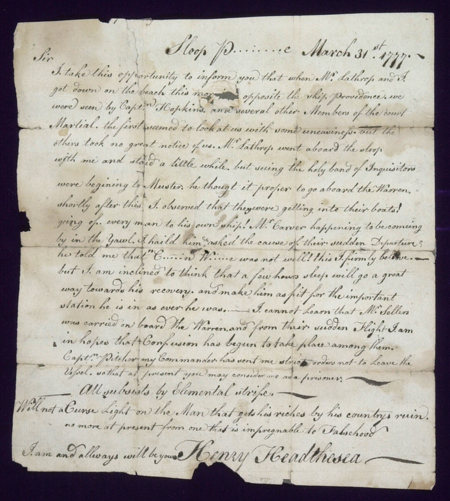 Sloop P..........e March 31st 1777
Sir
I take this opportunity to inform you that when Mr. Lathrop and I
got down on the beach this opposite the ship providence, we
were seen by Captn. Hopkins, and several other Members of the Court
Martial. the first seemed to look at us with some but the
others took no great notice of us. Mr. Lathrop went aboard the sloop
with me and staid a little while, but seeing the holy band of Inquisitors
were begining to Muster, he thought it proper to go aboard the Warren,
shortly after this I observed that they were getting into their boats
going off every man to his own ship. Mr. Carver happening to be coming
by in the Yawl. I haild him & asked the cause of their sudden Departure,
he told me that was not well! this I firmly believe
but I am inclined to think that a few hours sleep will go a great
way towards his recovery. and make him as fit for the important
station he is in as ever he was. I cannot Learn that Mr. Sellers
was carried on board the Warren, and from their sudden Flight I am
in hopes that Confusion has begun to take place among them.
Captn. Pitcher my Commander has sent me orders not to Leave the
Vessel, so that at present you may consider me as a prisoner.
All subsists by Elemental strife
Will not a Curse Light on the Man that gets his riches by his country's ruin.
no more at present from one that is impregnable to Falsehood
I am and allways will be yours Henry Headthesea